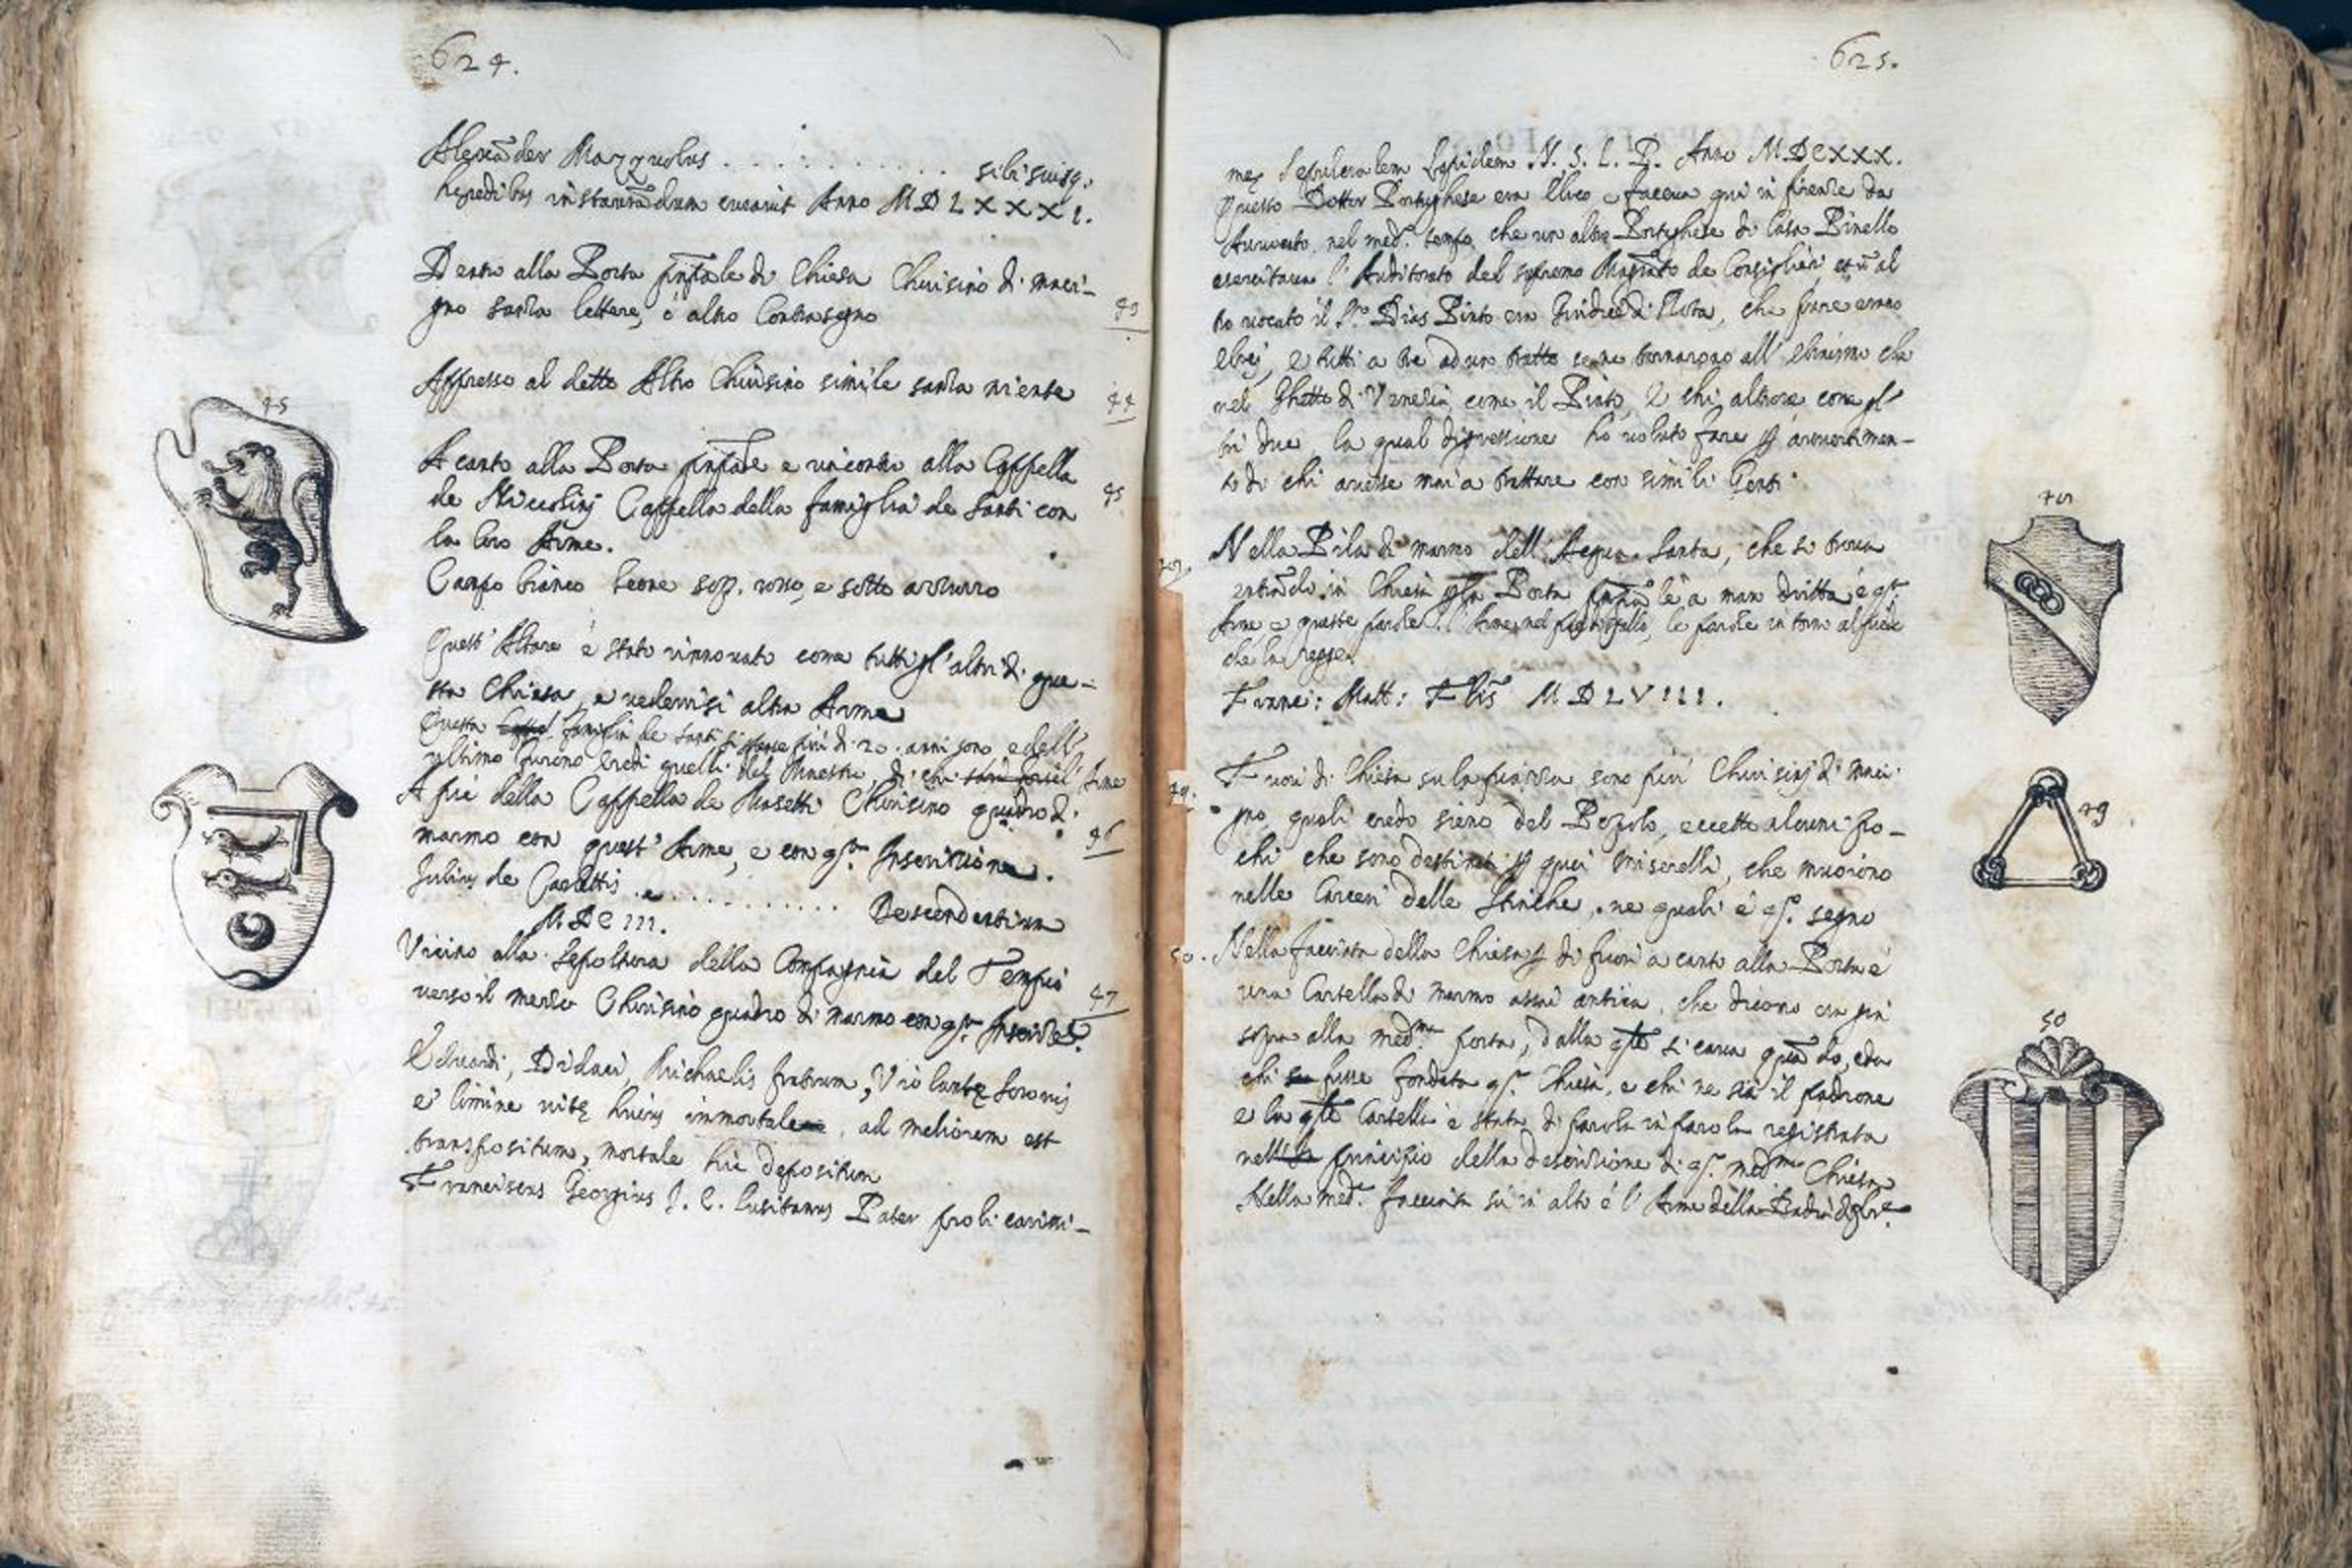 624.
Alexãder Mazzuolus . . . . . . . . . . sibi suisq.
heredibus instaurãdum curavit Anno MDLXXXI.
Dentro alla Porta prñpale di Chiesa Chiusino di maci-
gno senza lettere, o altro Contrasegno
43
Appresso al detto Altro Chiusino simile senza niente
44
A canto alla Porta prñpale e rincontro alla Cappella
de Niccolinj Cappella della famiglia de Santi con
45
la loro Arme.
Campo bianco Leone sop. rosso, e sotto azzurro
45
Quest' Altare è stato rinnovato come tutti gl' altri di que-
sta Chiesa, e vedervisi altra Arme
Questa famiglia de Santi si spense più di 20. anni sono, e dell'
ultimo furono eredi quelli del Maestro, di chi Arme
A piè della Cappella de Chiusino quadro di
marmo con quest' Arme, e con q.ta Inscrizione.
46
Julius de Carlettis . e . . . . . . . . . . Descendentium
M.DC III.
Vicino alla Sepoltura della Compagnia del Tempio
verso il mezzo Chiusino quadro di marmo con q.ta Inscriz.e
47
Eduardi, Didaci, Michaelis fratrum, Violantę Sororis
e' limine vitę huius immortale, ad meliorem est
transpositum, mortale hic depositum
Franciscus Georgius J. C. Lusitanus Pater proli carissi-
625.
mę Sepulcralem Lapidem N. S. L. P. Anno MDCXXX.
Questo Dottor Portughese era Ebreo e faceva qui in firenze da
Avvocato, nel med.o tempo, che un altro Portughese di Casa Pinello
esercitava l' Auditorato del supremo Magr̃ato de Consiglieri, et ũ al
tro vocato il S.re Dias Pinto era Giudice di Rota, che pure erano
ebrej, e tutti a tre ad un tratto se ne tornarono all' ebraismo che
nel Ghetto di Venezia, come il Pinto, e chi altrove come gl' al
tri due, la qual digressione ho voluto fare p avvertimen-
to di chi avesse mai a trattare con simili Genti
Nella Pila di marmo dell' Acqua Santa, che si trova
entrãdo in Chiesa p la Porta prñpale à man dritta è q.ta
Arme e queste parole. l' Arme nel piedistallo, le parole in torno al piede
che la regge.
Franc: Matt: Flis MDLVIII.
Fuori di Chiesa su la piazza sono più Chiusinj di maci-
49.
gno, quali credo sieno del Popolo, eccetto alcuni po-
chi che sono destinati p quei miserelli, che muoiono
nelle Carceri delle Stinche, ne quali è q.to segno
50. Nella facciata della Chiesa p di fuori a canto alla Porta è
una Cartella di marmo assai antica, che dicono era già
sopra alla med.ma porta, dalla q̃le si cava quãdo, e da
chi fusse fondata q.ta Chiesa, e chi ne sia il padrone
e la q̃le Cartella è stata di parola in parola registrata
nell principio della descrizione di q.ta med.ma Chiesa
Nella med.a facciata su in alto è l' Arme della
49
50